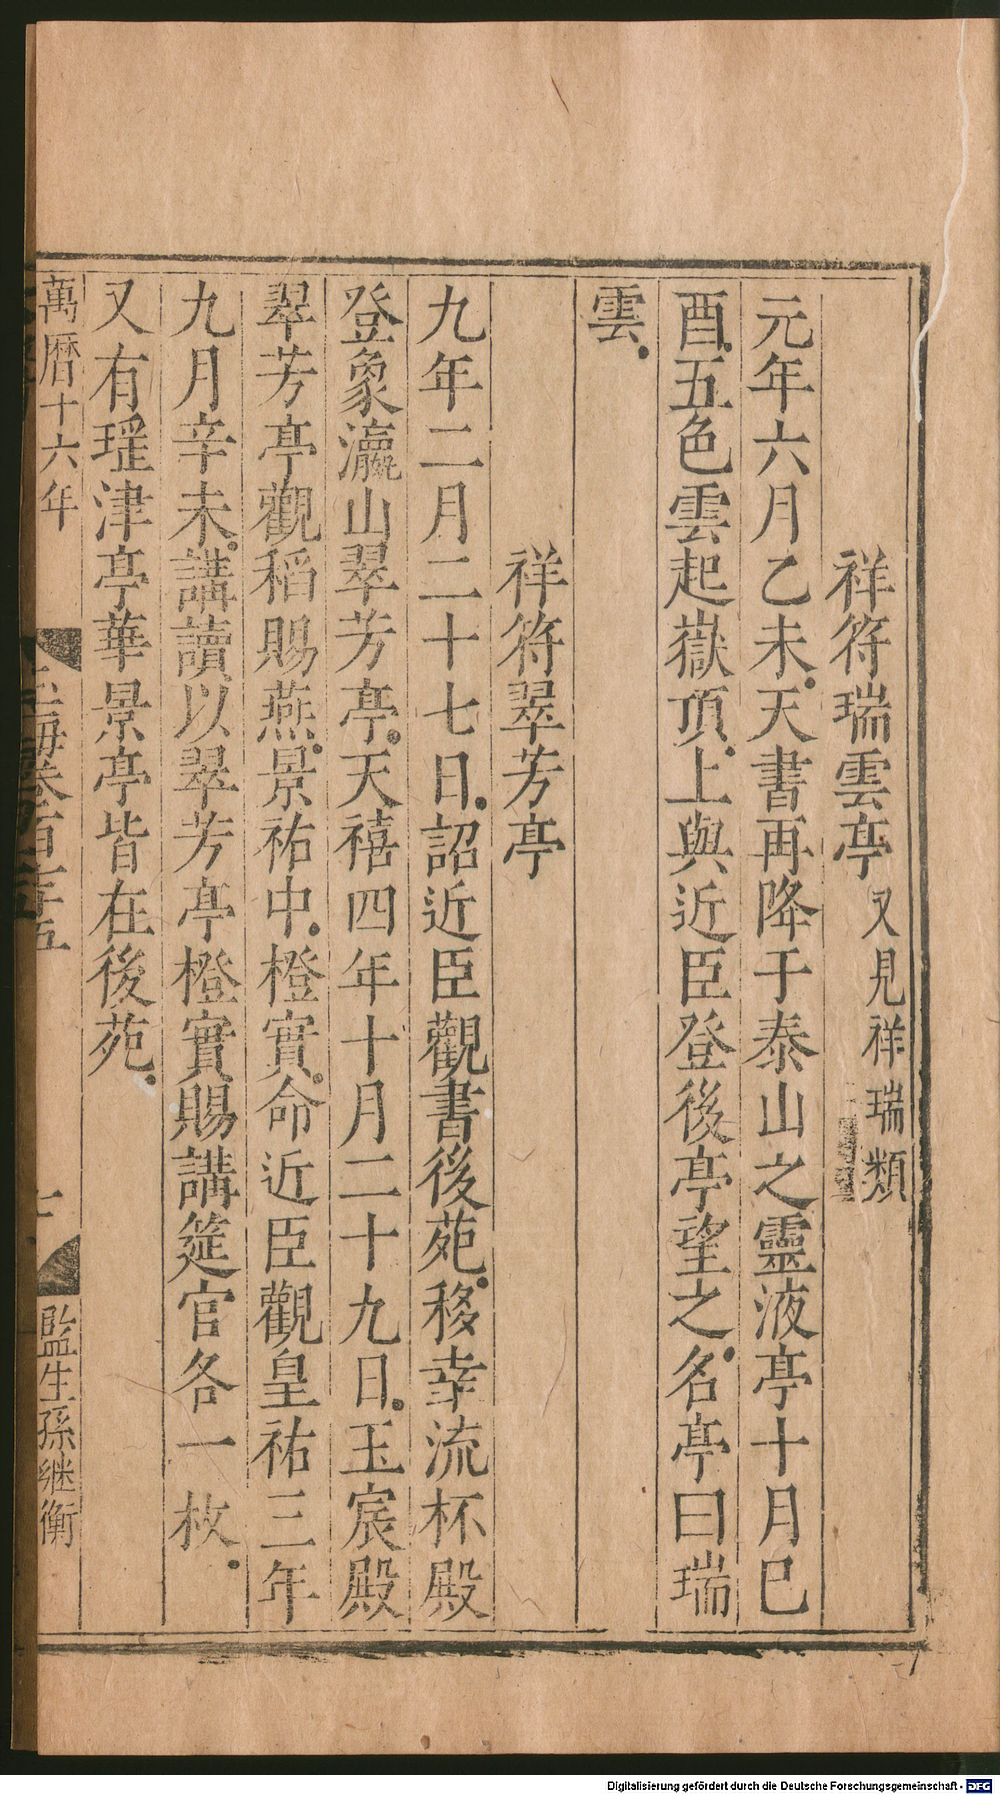 祥符瑞雲亭又見祥瑞類
元年六月乙未天書再降于泰山之靈液亭十月巳
酉五色雲起嶽頂上與近臣登後亭望之名亭曰瑞
雲
祥符翠芳亭
九年二月二十七日詔近臣觀書後苑移幸流杯殿
登象瀛山翠芳亭天禧四年十月二十九日玉宸殿
翠芳亭觀稻賜燕景祐中橙實命近臣觀皇祐三年
九月辛未講讀以翠芳亭橙實賜講筵官各一枚
又有瑶津亭華景亭皆在後苑
萬曆十六年
海卷百七十五
監生孫継衡
Digitalisierung gefördert durch die Deutsche Forschungsgemeinschaft - DFG